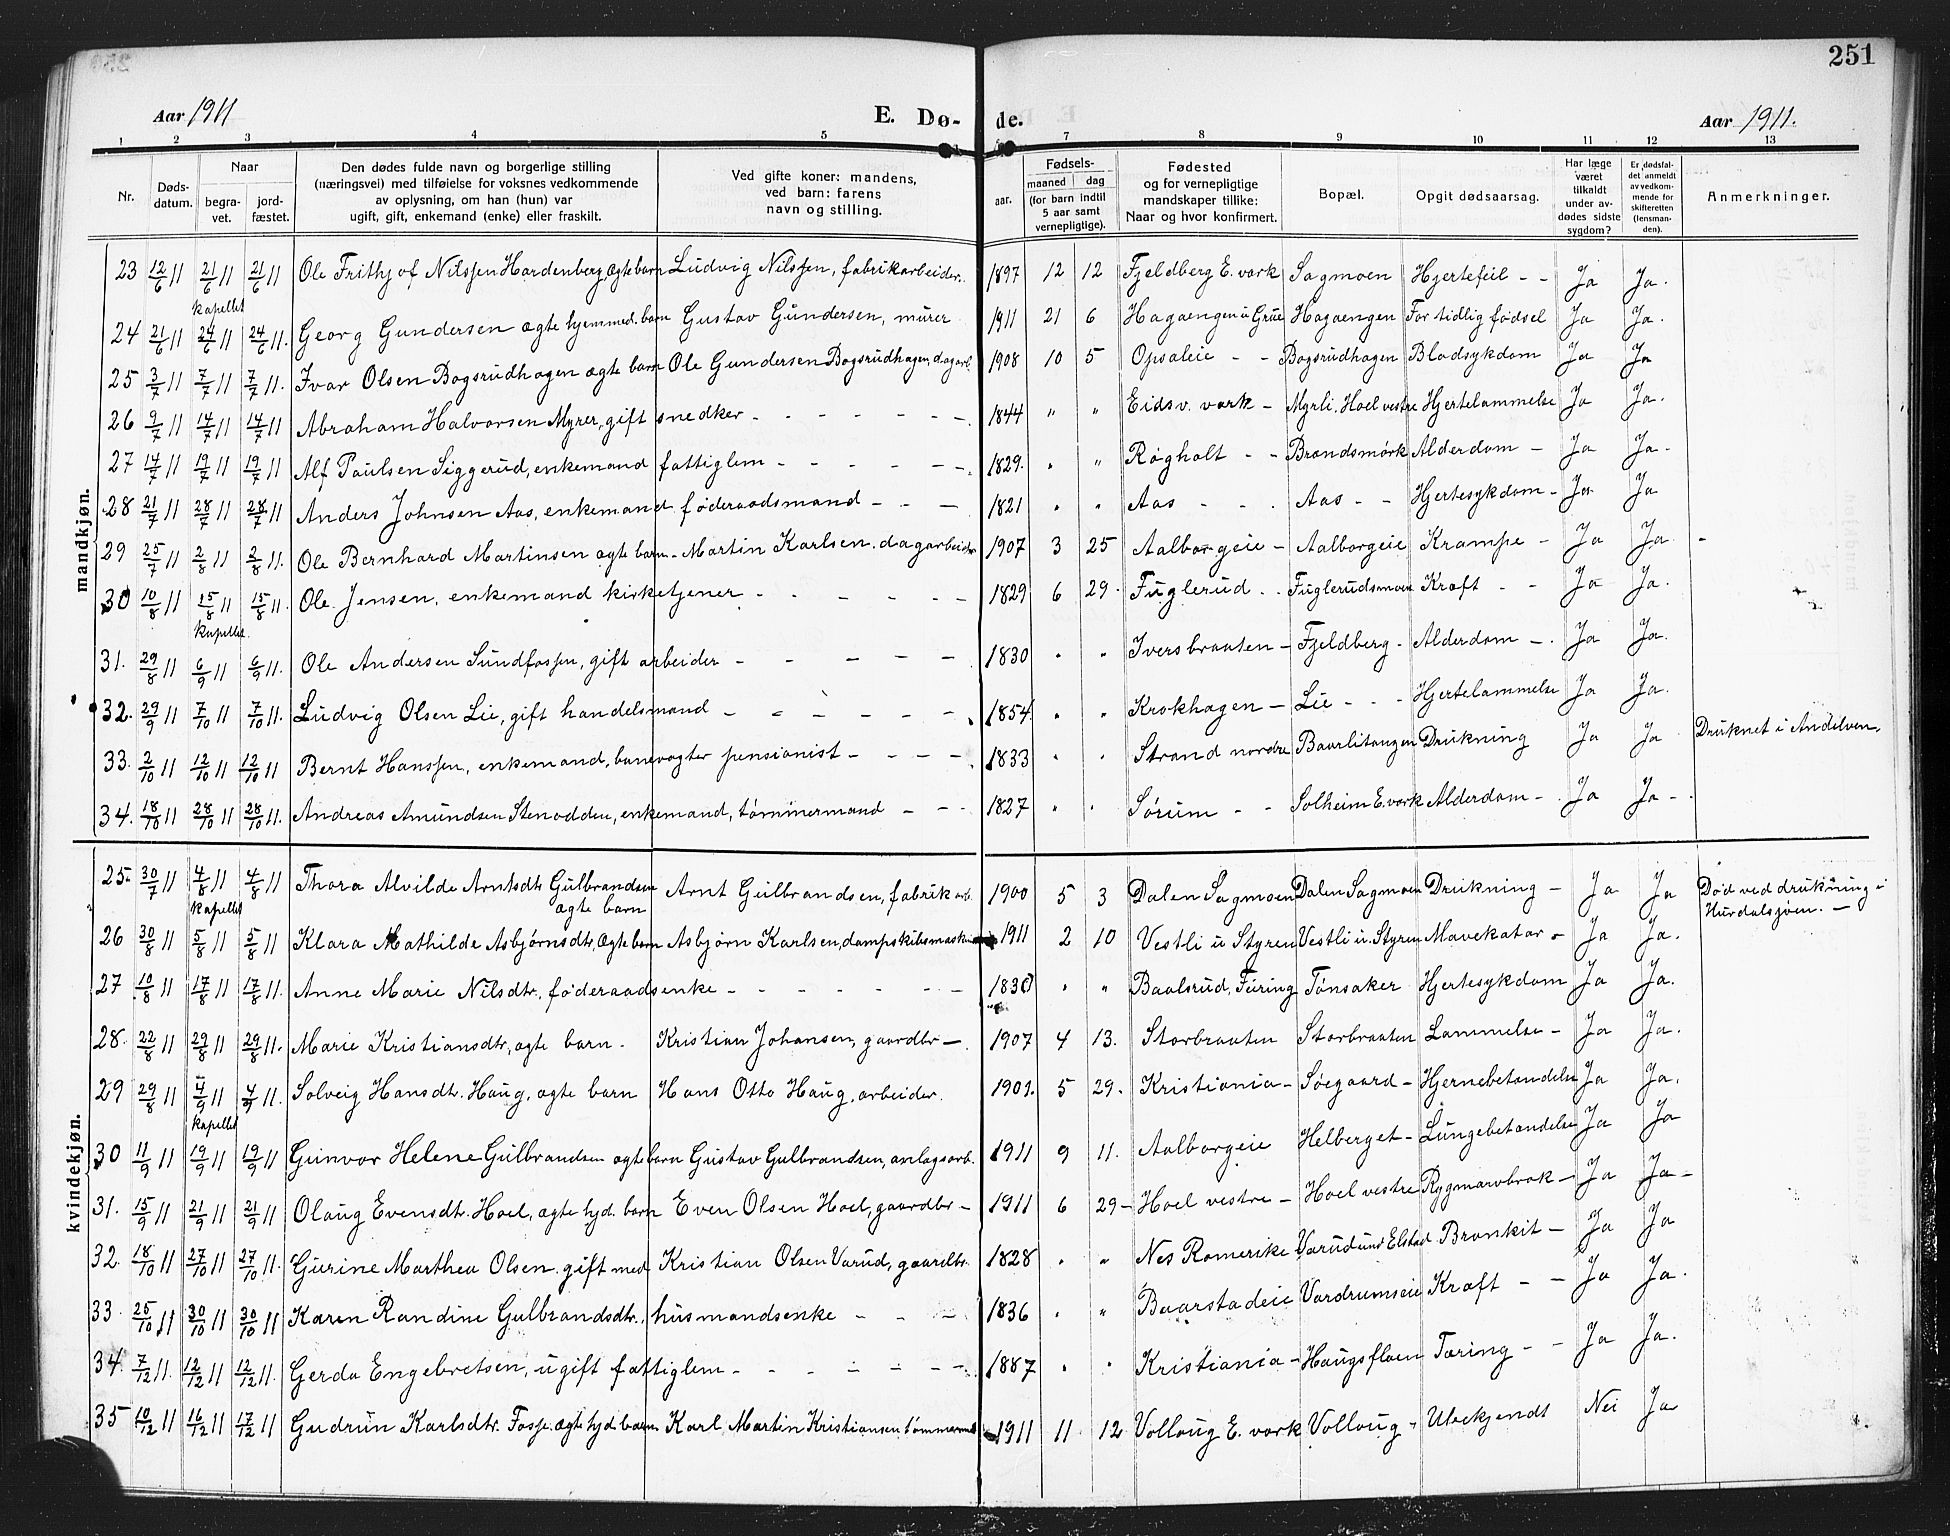 251
Aar 1911 E. Dø- de. Aar 1911.
1 2 3 4 5 6 7 8 9 10 11 12 13
Nr. Døds-datum. Naar begra-vet. jord-fæstet. Den dødes fulde navn og borgerlige stilling (næringsvei) med tilføielse for voksnes vedkommende av oplysning, om han (hun) var ugift, gift, enkemand (enke) eller fraskilt. Ved gifte koner: mandens, ved barn: farens navn og stilling. aar. Fødsels- maaned dag (for barn indtil 5 aar samt vernepligtige). Fødested og for vernepligtige mandskaper tillike: Naar og hvor konfirmert. Bopæl. Opgit dødsaarsag. Har læge været tilkaldt under av-dødes sidste sygdom? Er dødsfal-det anmeldt av vedkom-mende for skifteretten (lensman-den). Anmerkninger.
mandkjøn.
23 12/6 11 21/6 11 21/6 11 Ole Frithjof Nilssen Hardenberg, ægte barn Ludvig Nilssen, fabrikarbeider. 1897 12 12 Fjeldberg E. værk Sagmoen Hjertefeil - - Ja Ja.
kapellet
24 21/6 11 24/6 11 24/6 11. Georg Gundersen ægte hjemmed. barn Gustav Gundersen, murer 1911 21 6 Hagaengen u Grue Hagaengen For tidlig fødsel Ja Ja.
25 3/7 11 7/7 11 7/7 11. Ivar Olsen Bogsrudhagen ægte barn Ole Gundersen Bogsrudhagen, dagarb. 1908 10 5 Opsaleie - - Bogsrudhagen Blodsykdom Ja Ja
26 9/7 11 14/7 11 14/7 11 Abraham Halvorsen Myrer, gift snedker - - - - - - 1844 " " Eidsv. værk - Myrli, Hoel vestre Hjertelammelse Ja Ja.
27 14/7 11 19/7 11 19/7 11 Alf Paulsen Siggerud, enkemand fattiglem - - - - - 1829. " " Røgholt - - Brandsmørk Alderdom - Ja Ja.
28 21/7 11 28/7 11 28/7 11 Anders Johnsen Aas, enkemand føderaadsmand - - - 1821 " " Aas - - . Aas - - Hjertesykdom - Ja Ja
29 25/7 11 2/8 11 2/8 11. Ole Bernhard Martinsen ægte barn - Martin Karlsen, dagarbeider 1907 3 25 Aalborgeie - Aalborgeie Krampe - Ja Ja. -
30 10/8 11 15/8 11 15/8 11. Ole Jensen, enkemand kirketjener - - - - - - 1829 6 29. Fuglerud . . Fuglerudsmoen Kræft - - Ja Ja.
kapellet.
31. 29/8 11 6/9 11 6/9 11. Ole Andersen Sundfossen, gift arbeider - - - - - 1830 " " Iversbraaten - Fjeldberg - Alderdom - . Ja Ja.
32. 29/9 11 7/10 11 7/10 11. Ludvig Olsen Lie, gift handelsmand - - - - - - 1854. " " Krokhagen - Lie - - - Hjertelammelse Ja Ja.
33. 2/10 11 12/10 11 12/10 11 Bernt Hanssen, enkemand, banevogter pensionist - - - - 1833 " " Strand nordre Baarlitangen Drukning Ja Ja Druknet i Andelven.
34. 18/10 11 28/10 11 28/10 11. Andreas Amundsen Stenodden, enkemand, tømmermand - - - 1827 " " Sørum - - Solheim E. værk Alderdom - . Ja Ja - .
kvindekjøn.
25. 30/7 11 4/8 11 4/8 11 Thora Alvilde Arntsdtr Gulbrandsen ægte barn Arnt Gulbrandsen, fabrik arb. 1900 5 3 Dalen Sagmoen Dalen Sagmoen Drukning - Ja Ja Død ved drukning i Hurdalsjøen. -
kapellet
26 30/8 11 5/8 11 5/8 11. Klara Mathilde Asbjørnsdtr, ægte barn Asbjørn Karlsen, dampskibsmaskin 1911 2 10 Vestli u Styren Vestli u. Styren Mavekatar - Ja Ja.
27 10/8 11 17/8 11 17/8 11. Anne Marie Nilsdtr, føderaadsenke - - - - - - 1830 " " Baalsrud, Feiring Tønsaker Hjertesykdom Ja Ja.
28. 22/8 11 29/8 11 29/8 11. Marie Kristiansdtr, ægte barn. Kristian Johansen, gaardbr - 1907 4 13. Storbraaten Storbraaten Lammelse - Ja Ja.
29 29/8 11 4/9 11 4/9 11. Solveig Hansdtr. Haug, ægte barn Hans Otto Haug, arbeider. 1901. 5 29. Kristiania - Søegaard - Hjernebetændelse Ja Ja.
kapellet
30 11/9 11 19/9 11 19/9 11 Gunvor Helene Gulbrandsen ægte barn Gustav Gulbrandsen, anlagsarb. 1911 9 11. Aalborgeie Helberget - Lungebetændelse Ja Ja
31. 15/9 11 21/9 11 21/9 11 Olaug Evensdtr. Hoel, ægte hjd. barn Even Olsen Hoel, gaardbr - 1911 6 29 - Hoel vestre - Hoel vestre Rygmarvbrok - Ja Ja -
32. 18/10 11 27/10 11 27/10 11. Gurine Marthea Olsen. gift med Kristian Olsen Varud, gaardbr. 1828 " " Nes Romerike Varud und Elstad Bronkit - Ja Ja
33. 25/10 11 30/10 11 30/10 11 Karen Randine Gulbrandsdtr., husmandsenke - - - 1836 " " Baarstadeie Vardrumseie Kræft - - Ja Ja.
34. 7/12 11. 12/12 11 12/12 11. Gerda Engebretsen, ugift fattiglem - - - - - - 1887 " " Kristiania - Haugsfloen Tæring - - Ja Ja.
35 10/12 11 16/12 11 17/12 11 Gudrun Karlsdtr. Fosse. ægte hjd. barn Karl Martin Kristiansen tømmermd 1911 11 12 Vollaug E. værk Vollaug - Ubekjendt Nei Ja